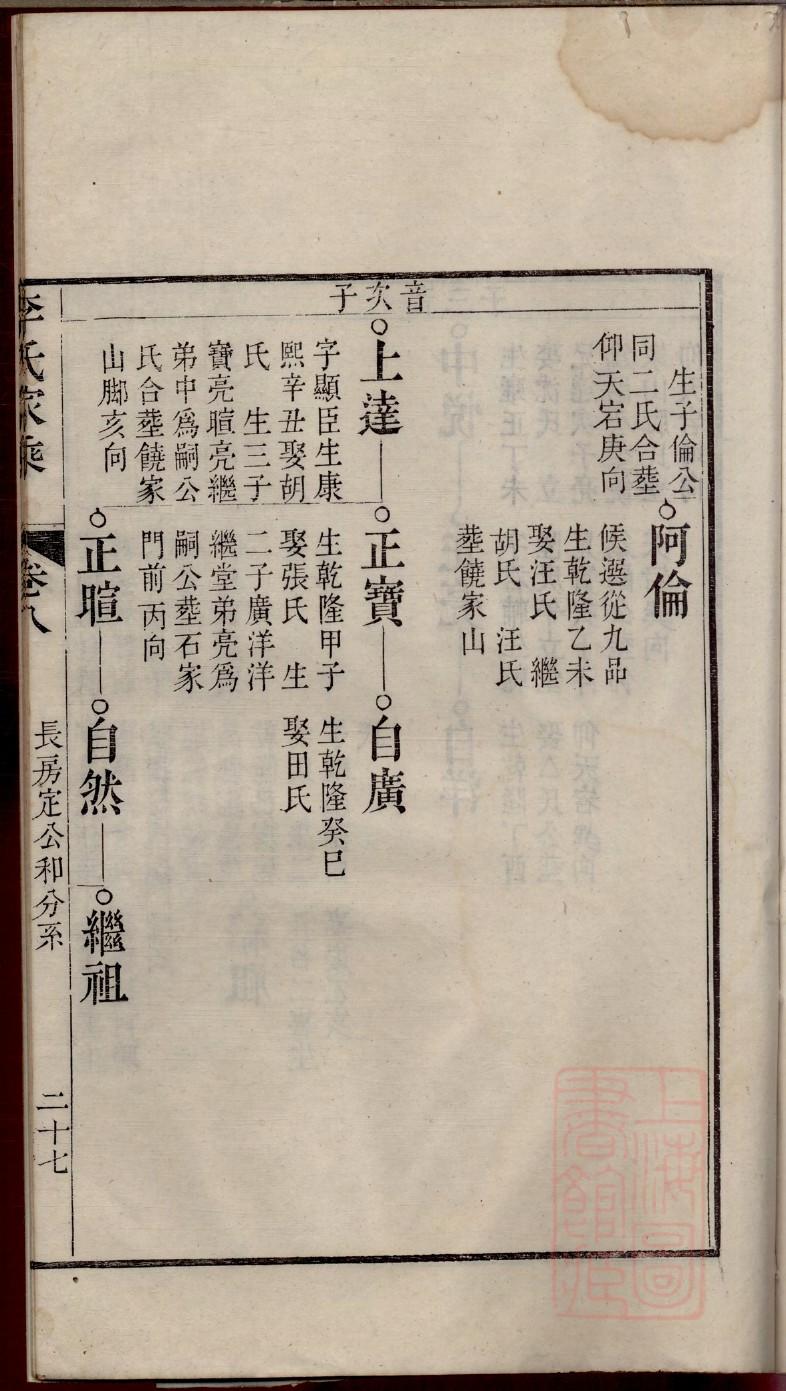 生子倫公
同二氏合塟
仰天宕庚向
阿倫
候選從九品
生乾隆乙未
娶汪氏　繼
胡氏　汪氏
塟饒家山
音次子
上達
字顯臣生康
熙辛丑娶胡
氏　生三子
寶亮暄亮繼
弟中爲嗣公
氏合塟饒家
山脚亥向
正寶
生乾隆甲子
娶張氏　生
二子廣洋洋
繼堂弟亮爲
嗣公塟石家
門前丙向
自廣
生乾隆癸巳
娶田氏
正暄
自然
繼祖
李氏家乘
卷八
長房定公和分系
二十七
上海圖書館藏